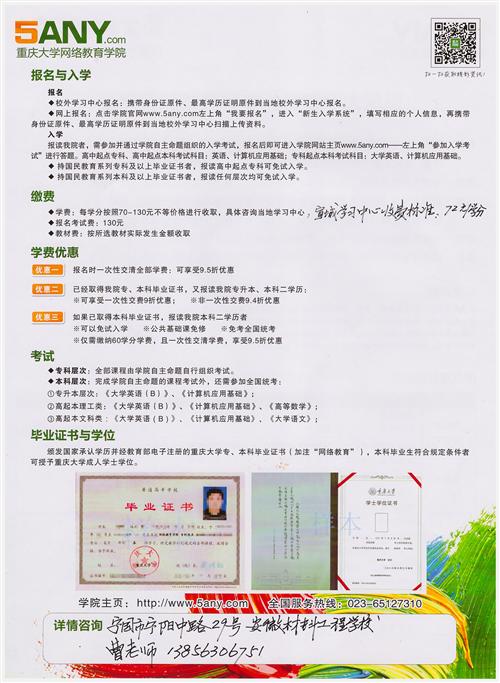 5ANY.com
重庆大学网络教育学院
扫一扫获取精彩资讯!
报名与入学
报名
◆校外学习中心报名:携带身份证原件、最高学历证明原件到当地校外学习中心报名。
◆网上报名:点击学院官网www.5any.com左上角“我要报名”,进入“新生入学系统”,填写相应的个人信息,再携带
身份证原件、最高学历证明原件到当地校外学习中心扫描上传资料。
入学
报读我院者,需参加并通过学院自主命题组织的入学考试,报名后即可进入学院网站主页www.5any.com——左上角“参加入学考
试”进行答题。高中起点专科、高中起点本科考试科目:英语、计算机应用基础;专科起点本科考试科目:大学英语、计算机应用基础。
◆持国民教育系列专科及以上毕业证书者,报读高中起点专科可免试入学。
◆持国民教育系列本科及以上毕业证书者,报读任何层次均可免试入学。
缴费
◆学费:每学分按照70-130元不等价格进行收取,具体咨询当地学习中心;宣城学习中心收费标准:72元/学分
◆报名考试费:130元
◆教材费:按所选教材实际发生金额收取
学费优惠
优惠一 报名时一次性交清全部学费:可享受9.5折优惠
优惠二 已经取得我院专、本科毕业证书,又报读我院专升本、本科二学历:
※可享受一次性交费9折优惠; ※非一次性交费9.4折优惠
优惠三 如果已取得本科毕业证书,报读我院本科二学历者
※可以免试入学 ※公共基础课免修 ※免考全国统考
※仅需缴纳60学分学费,且一次性交清学费,享受9.5折优惠
考试
◆专科层次:全部课程由学院自主命题自行组织考试。
◆本科层次:完成学院自主命题的课程考试外,还需参加全国统考:
①专升本层次:《大学英语(B)》、《计算机应用基础》;
②高起本理工类:《大学英语(B)》、《计算机应用基础》、《高等数学》;
③高起本文科类:《大学英语(B)》、《计算机应用基础》、《大学语文》;
毕业证书与学位
颁发国家承认学历并经教育部电子注册的重庆大学专、本科毕业证书(加注“网络教育”),本科毕业生符合规定条件者
可授予重庆大学成人学士学位。
普通高等学校
毕业证书
样本
重庆大学
学士学位证书
学院主页:http://www.5any.com 全国服务热线:023-65127310
详情咨询 宁国市宁阳中路29号 安徽材料工程学校
曹老师 13856306751